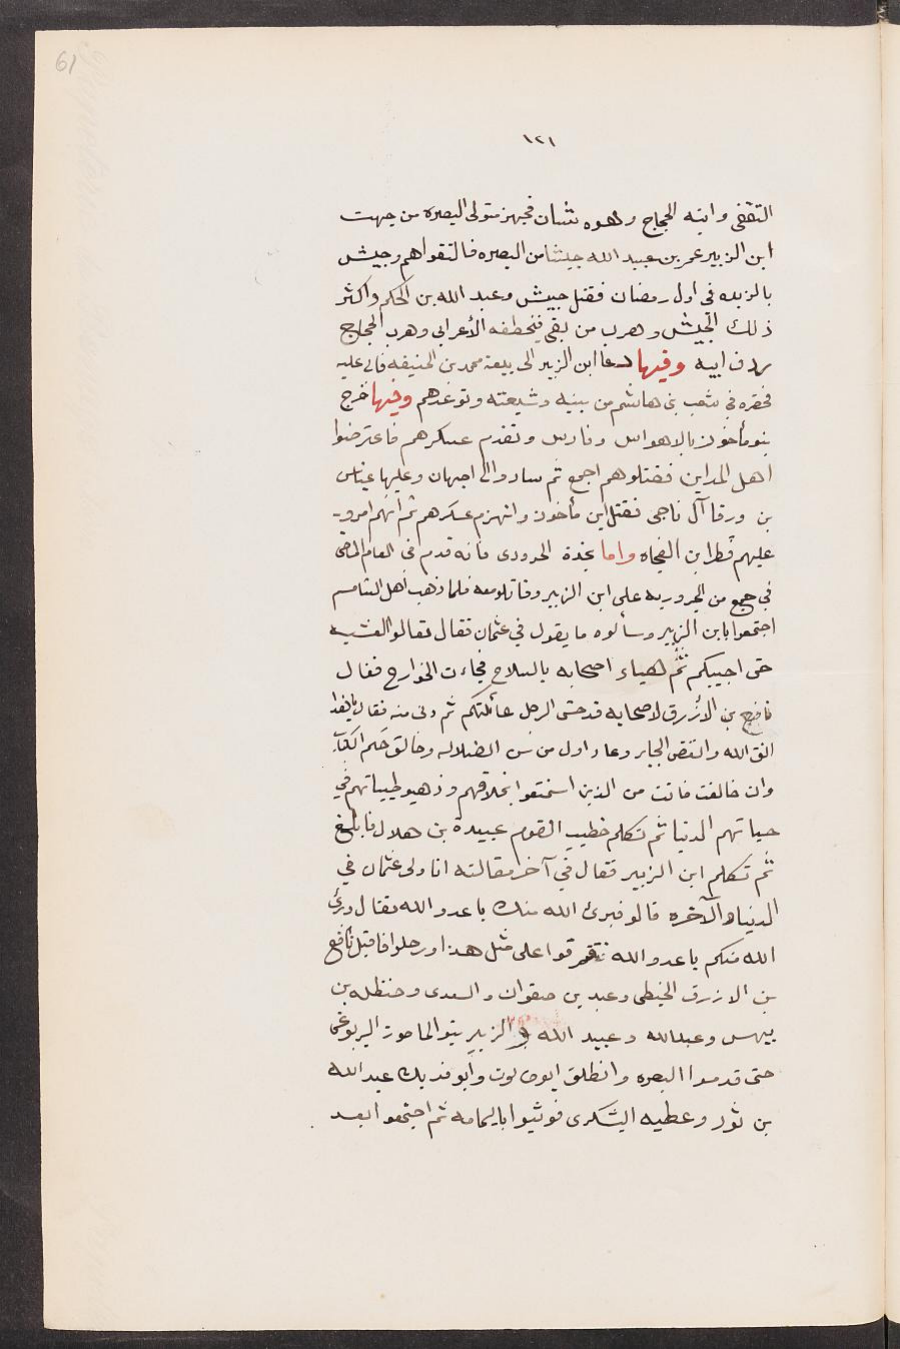 61
١٢١
الثقفي وابنه الحجاج وهو شان فجهز متولى البصره من جهت
ابن الزبير عمر بن عبيد الله جيشا من البصره فالتقوا هم وجيش
بالربده في اول رمضان فقتل حبيش وعبد الله بن الحكم واكثر
ذلك الجيش وهرب من بقي فتخطفه الأعراب وهرب الحجاج
ردف ابيه وفيها دعا ابن الزبير الى بيعته محمد بن الحنيفه فابى عليه
فحصره في شعب بني هاشم من بينيه وشيعته وتوعدهم وفيها خرج
بنو مأخوز بالاهواس وفارس وتقدم عسكرهم فاعترضوا
اهل المداين فقتلوهم اجمع ثم ساروا الى اجبهان وعليها عتاس
بن ورقا آل ناجى فقتل ابن مأخوز وانهزم عسكرهم ثم انهم امرو
عليهم قطرا بن الفجاه واما نجدة الحرورى فانه قدم في العام الماضي
في جمع من الحروريه على ابن الزبير وقاتلو معه فلما ذهب اهل الشام
اجتمعوا بابن الزبير وسألوه ما يقول في عثمان فقال تعالوا العشيه
حتى اجيبكم ثم هياء اصحابه بالسلاح فجاءت الخوارج فقال
نافع بن الأزرق لاصحابه قد خشى الرجل غائلتكم ثم دنى منه فقال يا هذا
اتق الله وابغض الجابر وعاد اول من سن الضلاله وخالف حكم الكتاب
وان خالفت فانت من الذين استمتعوا بخلاقهم وذهبو طيباتهم في
حياتهم الدنيا ثم تكلم خطيب القوم عبيدة بن هلال فابلغ
ثم تكلم ابن الزبير فقال في آخر مقالته انا ولى عثمان في
الدنيا والآخره قالو فبرئ الله منك يا عدو الله فقال وبرئ
الله منكم يا عدو الله فتفرقوا على مثل هذا ورحلوا فاقبل نافع
بن الازرق الحنظلى وعبد بن صفوان والسعدى وحنظله بن
بيهس وعبدالله وعبيد الله و الزبير بنو الماحوز اليربوعى
حتى قدموا البصره وانطلق ابوطالوت وأبو فديك عبد الله
بن ثور وعطيه اليشكرى فوثبوا باليمامه ثم اجتمعوا بعد